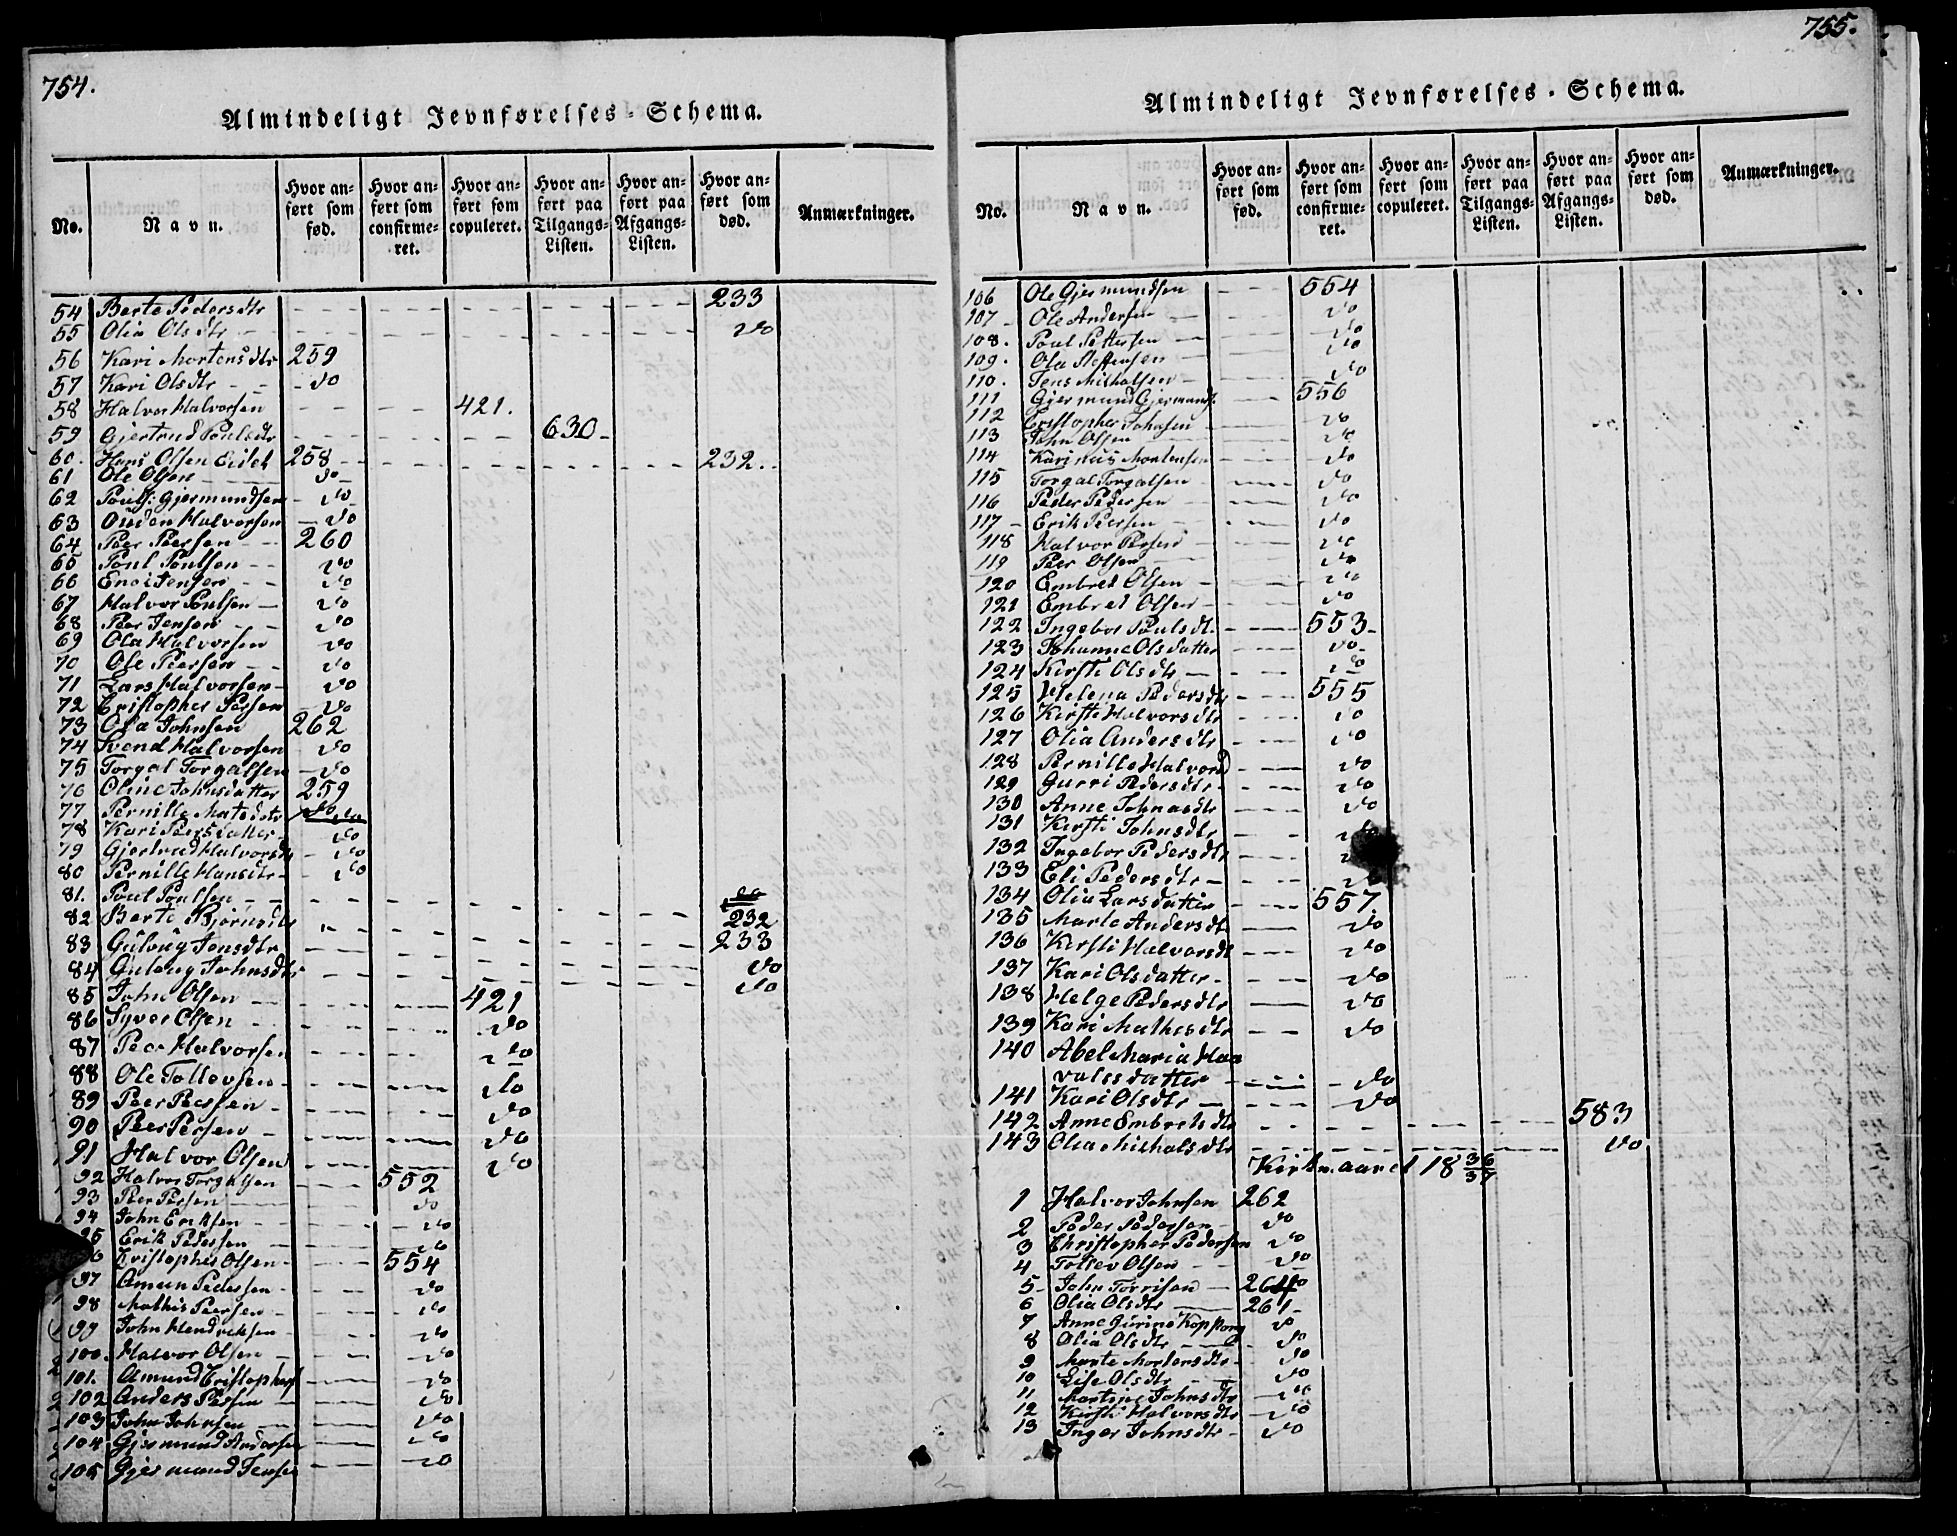 754.
Almindeligt Jevnførelses-Schema.
No. Navn. Hvor anført som fød. Hvor anført som confirmeret. Hvor anført som copuleret. Hvor anført paa Tilgangs-Listen. Hvor anført paa Afgangs-Listen. Hvor anført som død. Anmærkninger.
54 Berte Pedersdtr 233
55 Olia Olsdtr do
56 Kari Mortensdtr 259
57 Kari Olsdtr do
58 Halvor Halvorsen 421.
59 Gjertrud Poulsdtr 630
60. Hans Olsen Eidet 258 232.
61 Ole Olsen do
62 Pouls: Gjermundsen do
63 Ouden Halvorsen do
64 Peer Peersen 260
65 Poul Poulsen do
66 Jensen do
67 Halvor Poulsen do
68 Peer Jensen do
69 Ola Halvorsen do
70 Ole Peersen do
71 Lars Halvorsen do
72 Cristopher Persen do
73 Ola Johnsen 262
74 Svend Halvorsen do
75 Torgal Torgalsen do
76 Oline Johnsdatter 259
77 Pernille do
78 Kari Peersdatter do
79 Gjertrud Halvorsdtr do
80 Pernille Hansdtr do
81. Poul Poulsen do
82 Berte Bjørnsdtr 232
83 Gulaug Jonsdtr 233
84 Gulaug Johnsdtr do
85 John Olsen 421 do
86 Syver Olsen do
87 Peer Halvorsen do
88 Ole Tollevsen do
89 Peer Peersen do
90 Peer Persen do
91 Halvor Olsen do
92 Halvor Torgalsen 552
93 Peer Persen do
94 John Eriksen do
95 Erik Pedersen do
Cristopher Olsen 554
97 Amun Pedersen do
98 Mathis Peersen do
99 John Hendriksen do
100. Halvor Olsen do
101. Amund Cristophers do
102 Anders Persen do
103 John Johnsen do
104 Gjermund Andersen do
105 Gjermund Jensen do
755.
Almindeligt Jevnførelses-Schema.
No. Navn. Hvor anført som fød. Hvor anført som confirmeret. Hvor anført som copuleret. Hvor anført paa Tilgangs-Listen. Hvor anført paa Afgangs-Listen. Hvor anført som død. Anmærkninger.
106 Ole Gjermundsen 554
107 Ole Andersen do
108. Poul Pettersen do
109. Ola Steffensen do
110. Jens Mikkalsen do
111 Gjermund Gjermunds. 556
112 Cristopher Johnsen do
113 John Olsen do
114 Karinus Mortensen do
115 Torgal Torgalsen do
116 Peder Pedersen do
117 Erik Peersen do
118 Halvor Persen do
119 Peer Olsen do
120 Embret Olsen do
121 Embret Olsen do
122 Ingebor Poulsdt. 553
123 Johanne Olsdatter do
124 Kirsti Olsdtr do
125 Helena Pedersdtr 555
126 Kirsti Halvorsdtr do
127 Olia Andersdtr do
128 Pernille Halvorsd do
129 Gurri Pedersdtr do
130 Anne Johnasdtr do
131 Kirsti Johnsdtr do
132 Ingebor Pedersdtr
133 Eli Pedersdtr do
134 Olia Larsdatter 557
135 Marte Andersdt do
136 Kirsti Halvorsdt do
137 Kari Olsdatter do
138 Helge Pedersdtr do
139 Kari Mathisdtr do
140 Abel Maria Haa
valssdatter do
141 Kari Olsdtr do
142 Anne Embretsdtr 583
143 Olia Mikhalsdtr do
Kirkeaaret 18 36/37
1 Halvor Johnsen 262
2 Peder Pedersen do
3 Christopher Pedersen do
4 Tollev Olsen do
5 John Torrisen 264
6 Olia Olsdtr 261
7 Anne Gurine Koppang do
8 Olia Olsdtr do
9 Marte Mortensdtr do
10 Lise Olsdtr do
11 Martine Johnsdtr do
12 Kirsti Halvorsdtr do
13 Inger Johnsdtr do